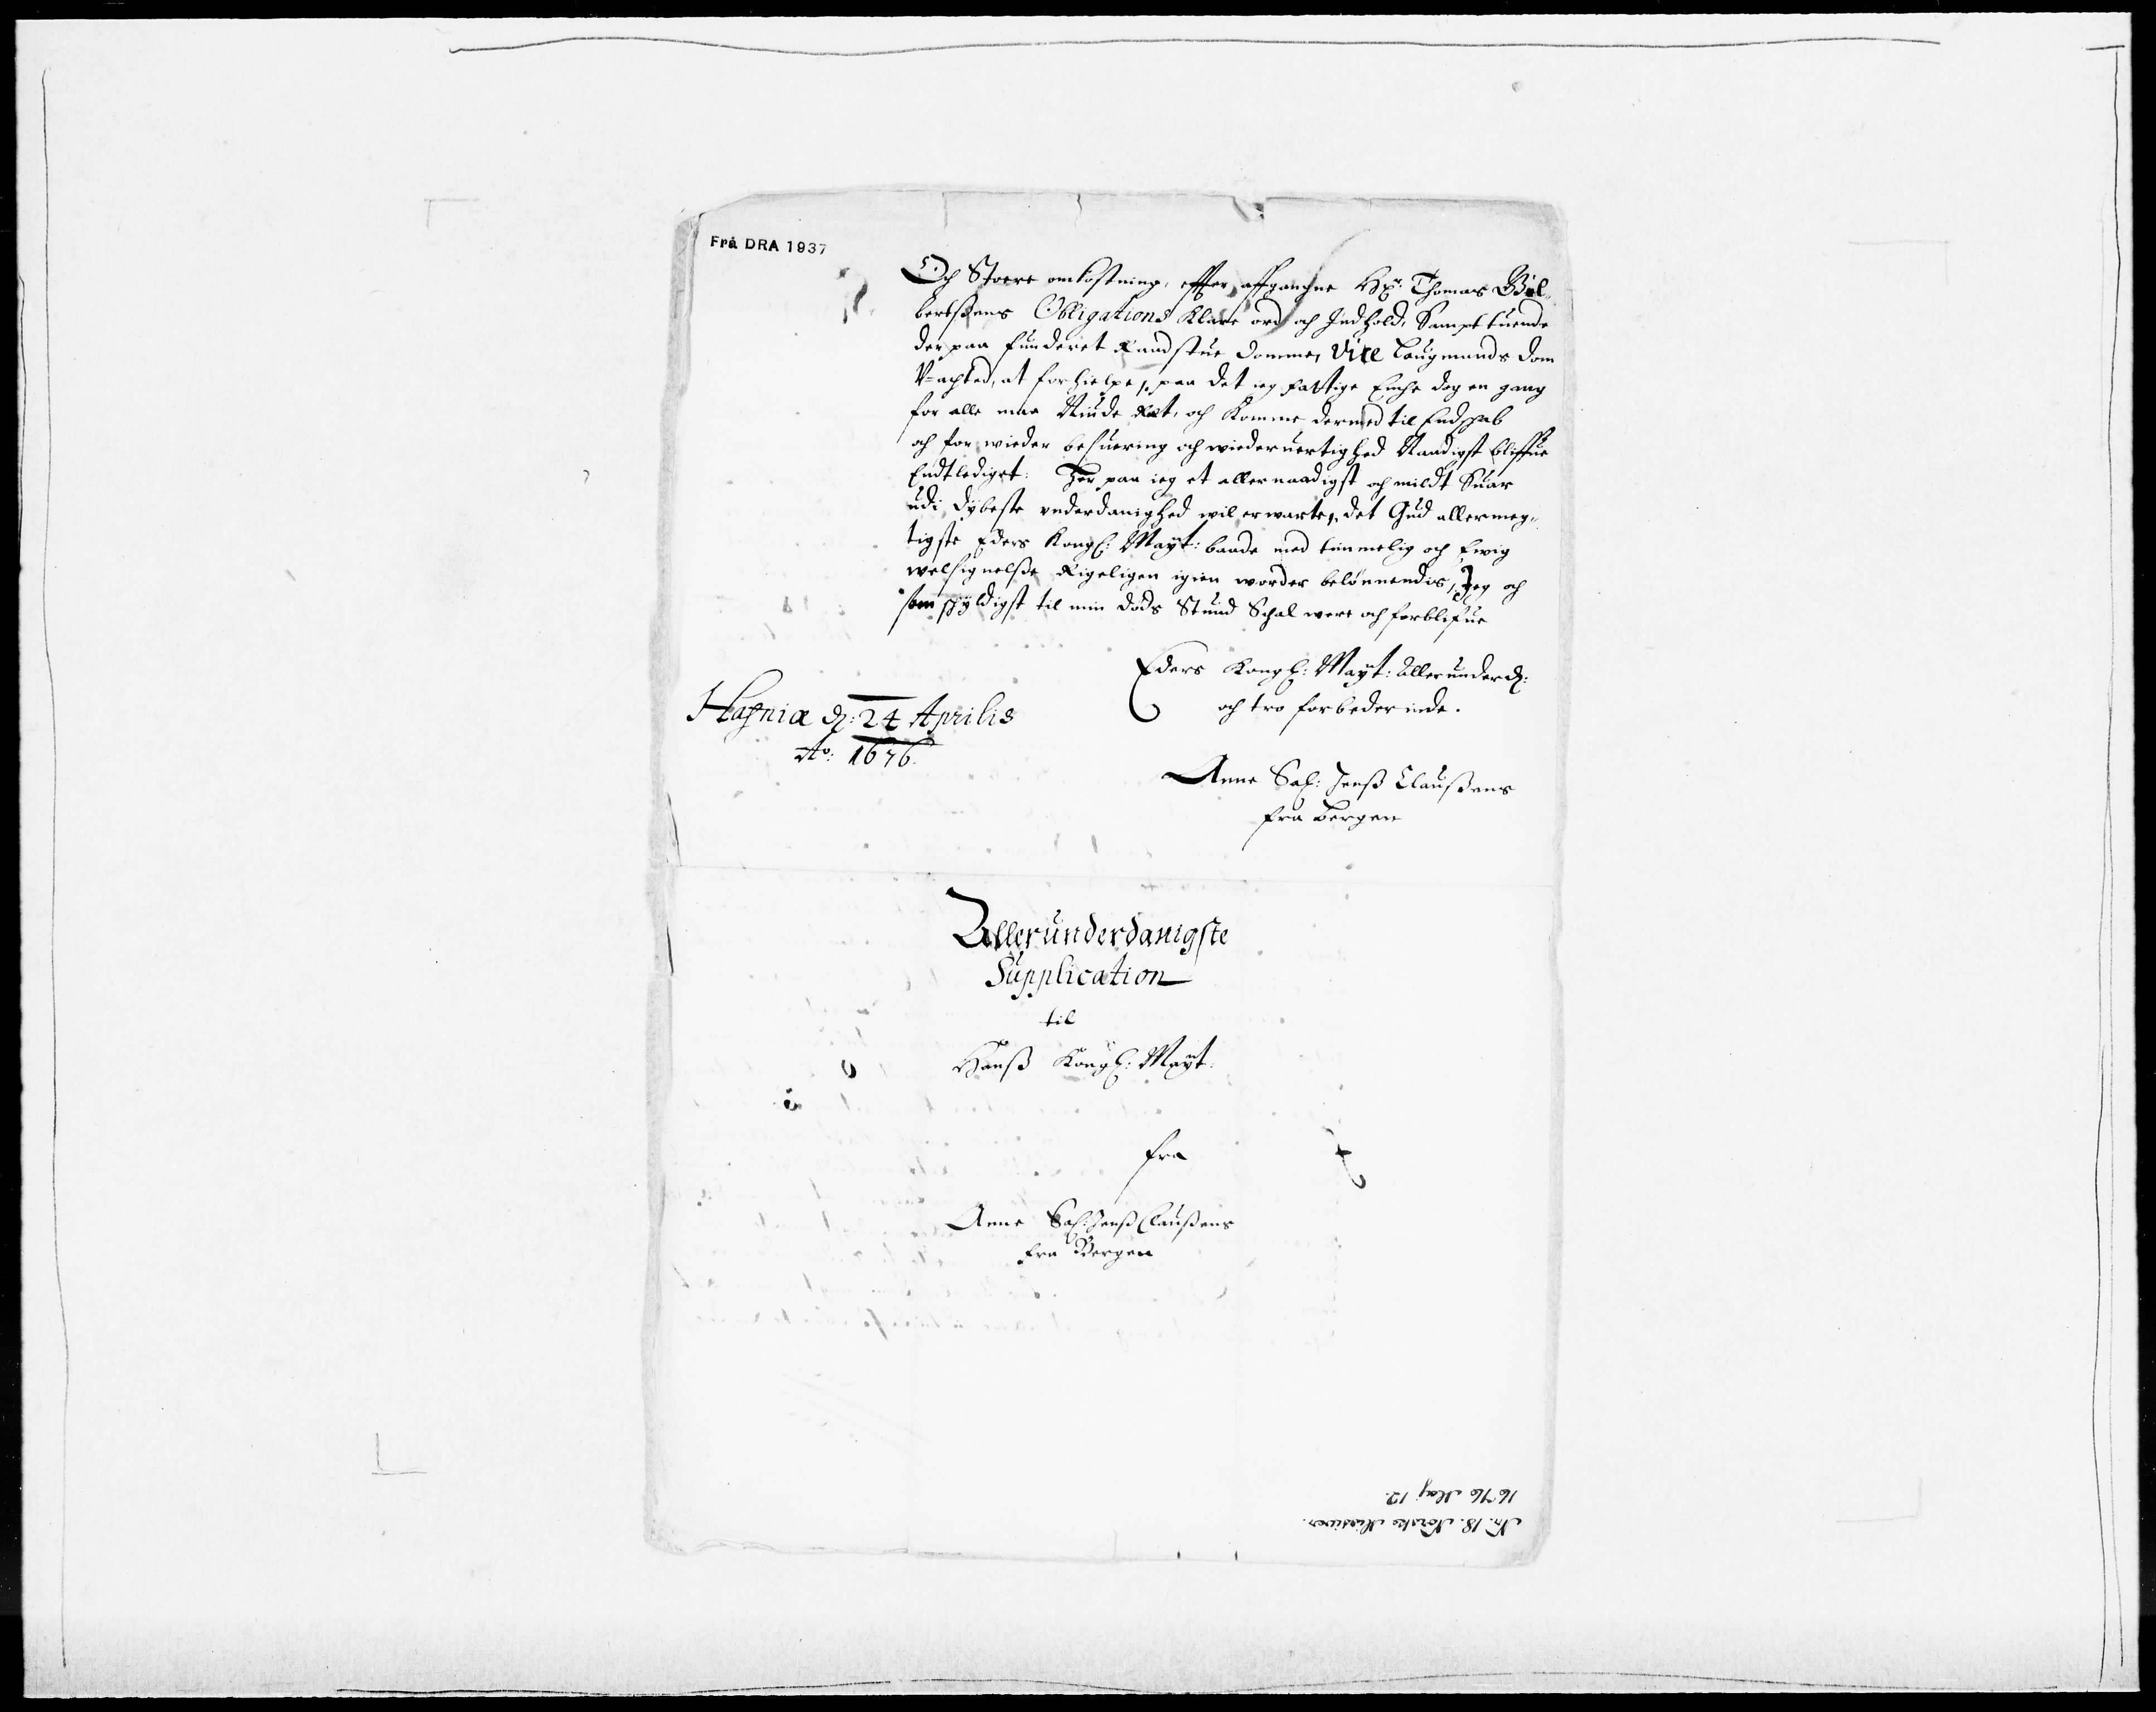 Frå DRA 1937
Och Stoere omkostning, effter affgangne Hr: Thomas Gil-
bertßens Obligations Klare ord och Indhold, Sampt tuende
der paa funderet Raadstue Domme, Vice Laugmands dom
V-achted, at forhielpe, paa det ieg fattige Enche dog en gang
for alle maa Niude Ret, och Komme dermed til Endschab
och for wieder besuering och wiederuertighed Naadigst bliffue
Endtlediget: Her paa ieg et allernaadigst och mildt Suar
udi dÿbeste vnderdanighed wil erwarte, det Gud allermeg-
tigste Eders Kongl: Maÿt: baade med timmelig och Ewig
welsignelße Rigeligen igien worder belønnendis, Jeg och
som schÿldigst til min døds Stund Schal were och forblifue
Eders Kongl: Maÿt: Allerunderd:
och tro forbederinde.
Hafniæ d: 24 Aprilis
Ao: 1676.
Anne Sal: Jenß Claußens
fra Bergen
Allerunderdanigste
Supplication
til
Hanß Kongl: Maÿt:
fra
Anne Sal: Jenß Claußens
fra Bergen
Nr. 18. Norske Missiver.
1676 Maj 12.